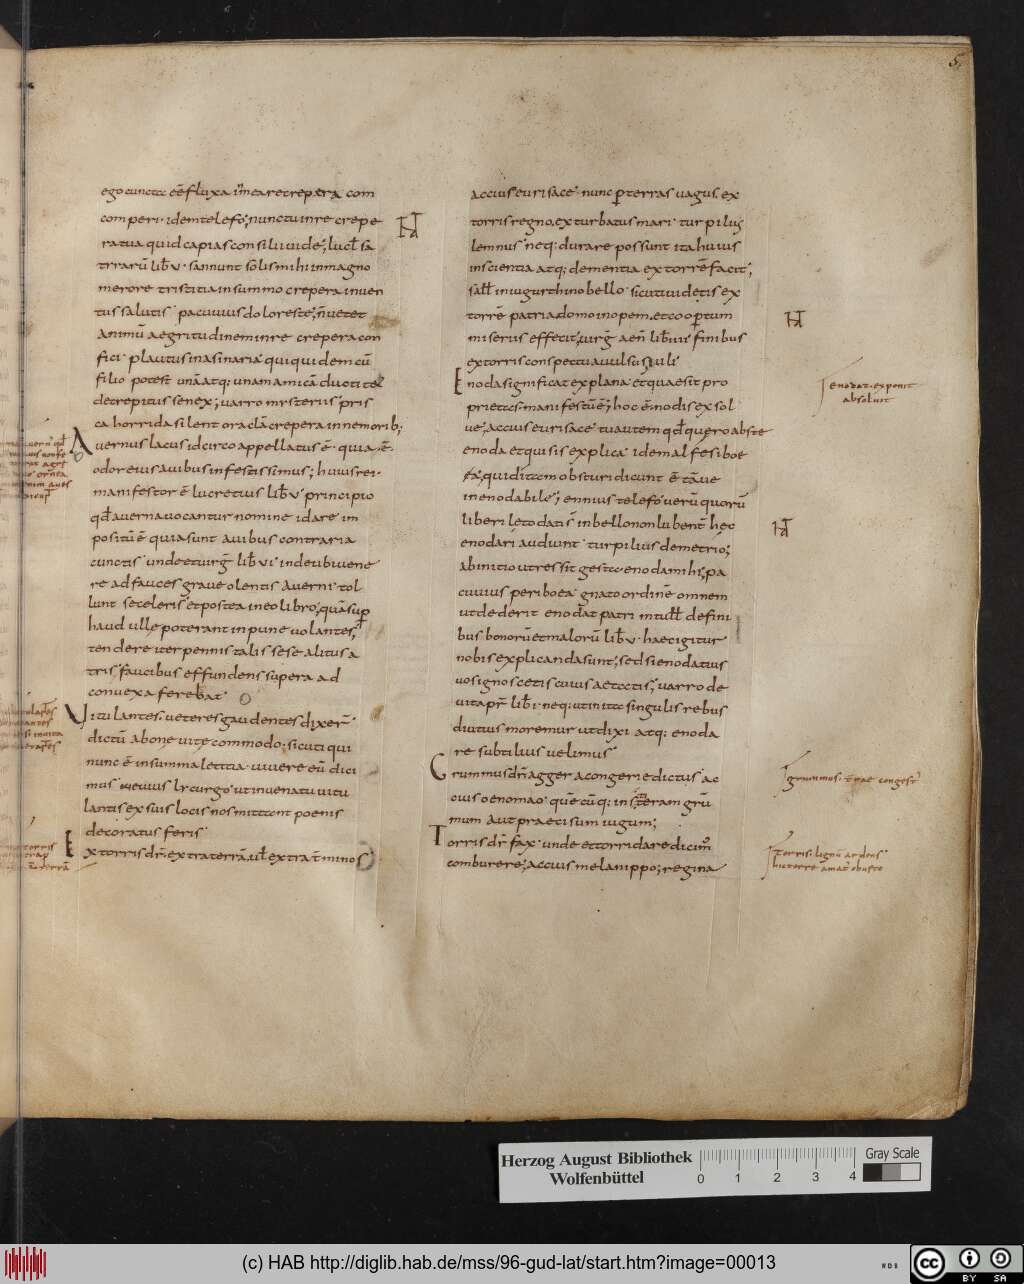 5.
ego cunctā eē fluxa īmea re crepera com
comperi· idem telefo; nunc tu in re crepe
ratua quid capias consilii uide; lucł sa
trarū libͬ v· sannunt solis mihi in magno
merore tristitia in summo crepera inuen
tus salutis· pacuuius doloreste; n̄ uetet
animū aegritudine in re crepera con
fici· plautus in asinaria· qui quidem cū
filio potest· unā atq: unam amicā ductitet
decrepitus senex; uarro mysterius pris
ca horrida silent oracła crepera in nemorib;
Auernus lacus idcirco appellatus ē· quia ē·
odor eius auibus infestissimus; huius rei·
manifestor ē lucretius libͬ v· principio
qđ auerna uocantur nomine id a re im
positū ē quia sunt auibus contraria
cunctis· unde et uirg̅ libͬ vi· inde ubi uene
re ad fauces graue olentis auerni· tol
lunt se celeres· et postea in eo libro; quā sup
haud ulle poterant inpune uolantes;
tendere iter pennis talis sese alitus a
tris; faucibus effundens supera ad
conuexa ferebat·
Uitulantes· ueteres gaudentes dixer̄·
dictū a bone uite commodo· sicuti qui
nunc ē in summa letitia· uiuere eū dici
mus· neuius lycurgo· ut in uenatu uitu
lantis ex suis locis nos mittant poenis
decoratus feris·
Extorris dr̄· extra terrā· uł extra tminos
accius eurisace· nunc p terras uagus. ex
torris regno, exturbatus mari· turpilius
lemnus· neq: durare possunt ita huius
inscientia atq; dementia extorrē facit;
salł in iugurthino bello· sicuti uidetis ex
torrē patria domo inopem, et coopertum
miseriis effecit; uirg̅ aen̄ libͬ iiii· finibus
extorris conspectu auulsus iuli
Enoda significat explana· et quaesit pro
prietas· manifestū ē; hoc ē· nodis exsol
ue, accius eurisace· tu autem qđ quero abste
enoda et quis is explica· idem alfesiboe
inenodabile; ennius telefo· uerū quorū
liberi leto dati s in bello non lubent hec
enodari audiunt· turpilius demetrio;
abinitio ut res sit gesta enoda mihi; pa
cuuius periboea· gnato ordinē omnem
ut dederit enodat patri· m tulł defini
bus bonorū et malorū libͬ v· haec igitur
nobis explicanda sunt; sed si enodatius
uos ignoscetis cuius aetatis; uarro de
uita p̄r̄ libͬ i· neq: ut in ita singulis rebus
diutius moremur ut dixi atq: enoda
re subtilius uelimus·
Grummus dr̄ agger a congerie dictus· ac
cius oenomao· quē cūq: insteram grū
mum aut praecisum iugum;
Torris dr̄ fax· unde et torridare dicim̄
comburere; accius melanippo; regina
enodat· exponit
absoluit
grummus· t̄rae congest̄
Torris· lignū ardens·
Herzog August Bibliothek
Wolfenbüttel
0 1 2 3 4
Gray Scale
(c) HAB http://diglib.hab.de/mss/96-gud-lat/start.htm?image=00013
WDB
CC BY SA